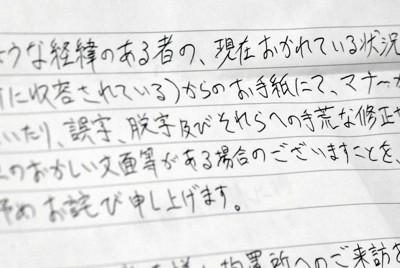 ような経緯のある者の、現在おかれている状況
に収容されている)からのお手紙にて、マナーが
いたり、誤字、脱字及びそれらへの手荒な修正や
のおかしい文面等がある場合のございますことを、
予めお詫び申し上げます。
拘置所へのご来訪あ